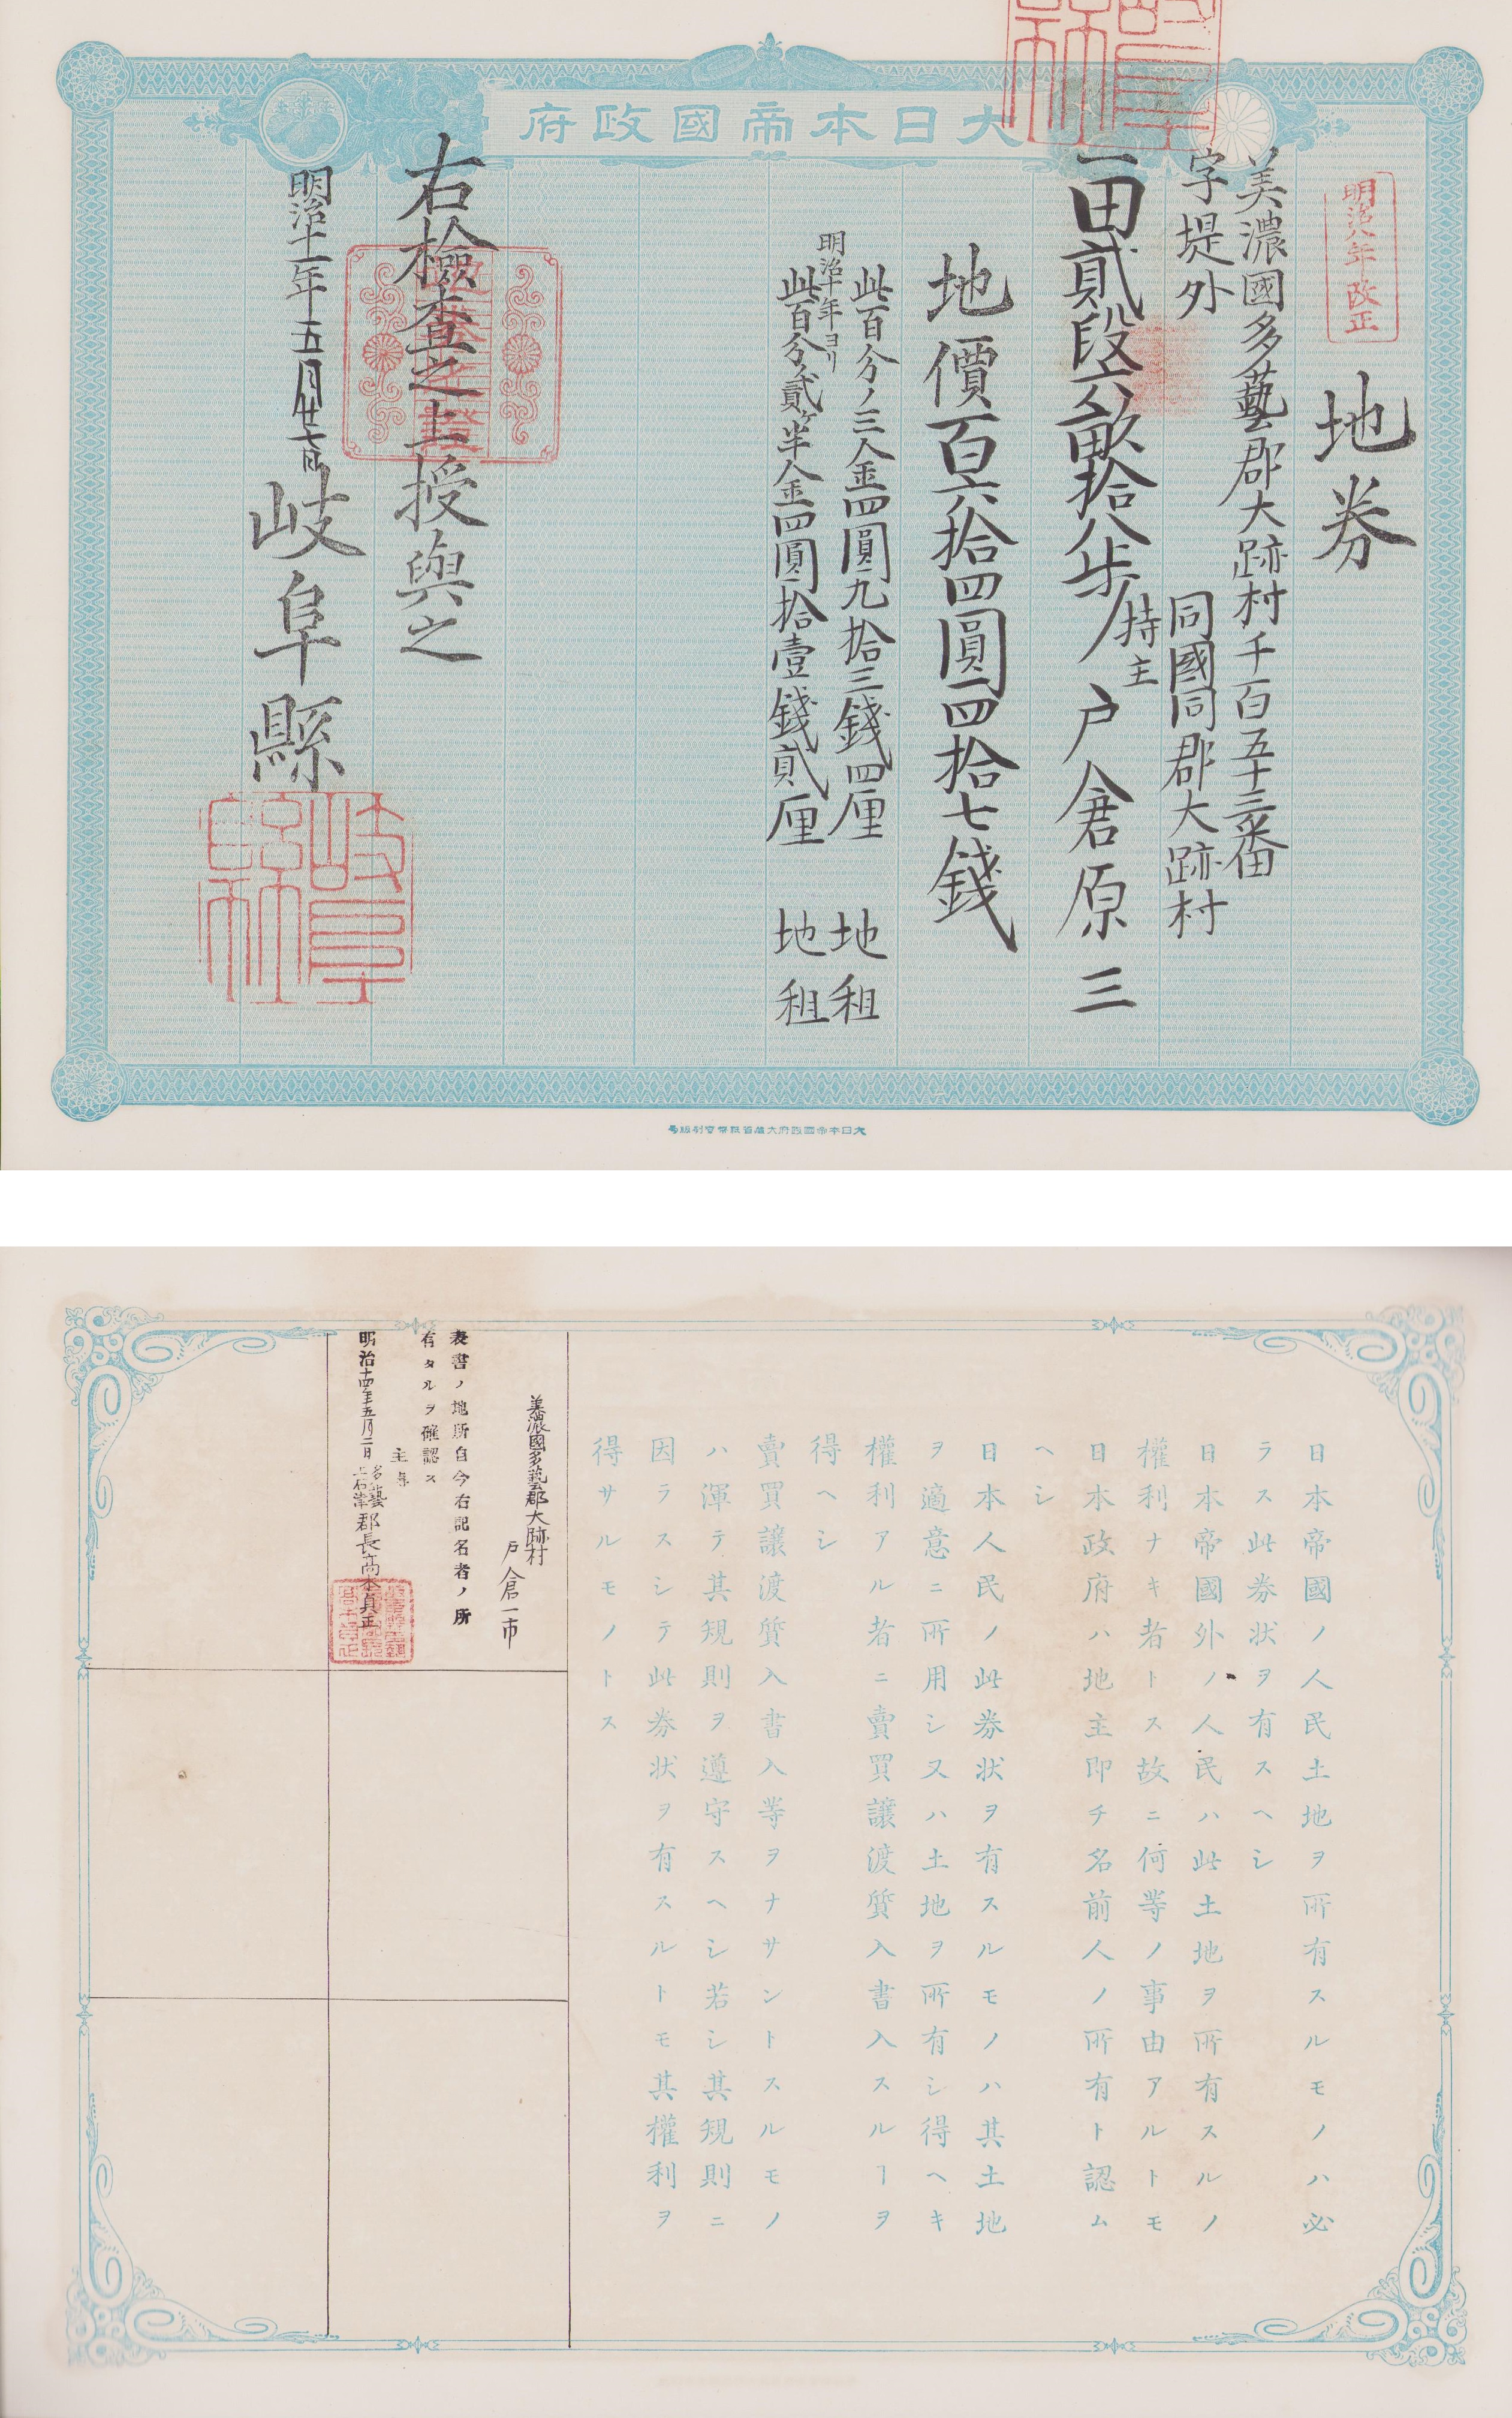 大日本帝國政府
明治八年改正
地券
美濃國多藝郡大跡村千百五十三番
字堤外
同國同郡大跡村
一田貳段六畝拾八歩
持主
戸倉原三
地價百六拾四圓四拾七錢
此百分ノ三金四圓九拾三錢四厘
地租
明治十年ヨリ
此百分ノ貳ケ半金四圓拾壹錢貳厘
地租
右檢査之上授與之
明治十一年五月廿七日
岐阜縣
日本帝國ノ人民土地ヲ所有スルモノハ必
ラス此券状ヲ有スヘシ
日本帝國外ノ人民ハ此土地ヲ所有スルノ
權利ナキ者トス故ニ何等ノ事由アルトモ
日本政府ハ地主即チ名前人ノ所有ト認ム
ヘシ
日本人民ノ此券状ヲ有スルモノハ其土地
ヲ適意ニ所用シ又ハ土地ヲ所有シ得ヘキ
權利アル者ニ賣買讓渡質入書入スルヿヲ
得ヘシ
賣買讓渡質入書入等ヲナサントスルモノ
ハ渾テ其規則ヲ遵守スヘシ若シ其規則ニ
因ラスシテ此券状ヲ有スルトモ其權利ヲ
得サルモノトス
美濃國多藝郡大跡村
戸倉一市
表書ノ地所自今右記名者ノ所
有タルヲ確認ス
明治十四年五月二日
多藝
上石津
郡長高木貞正